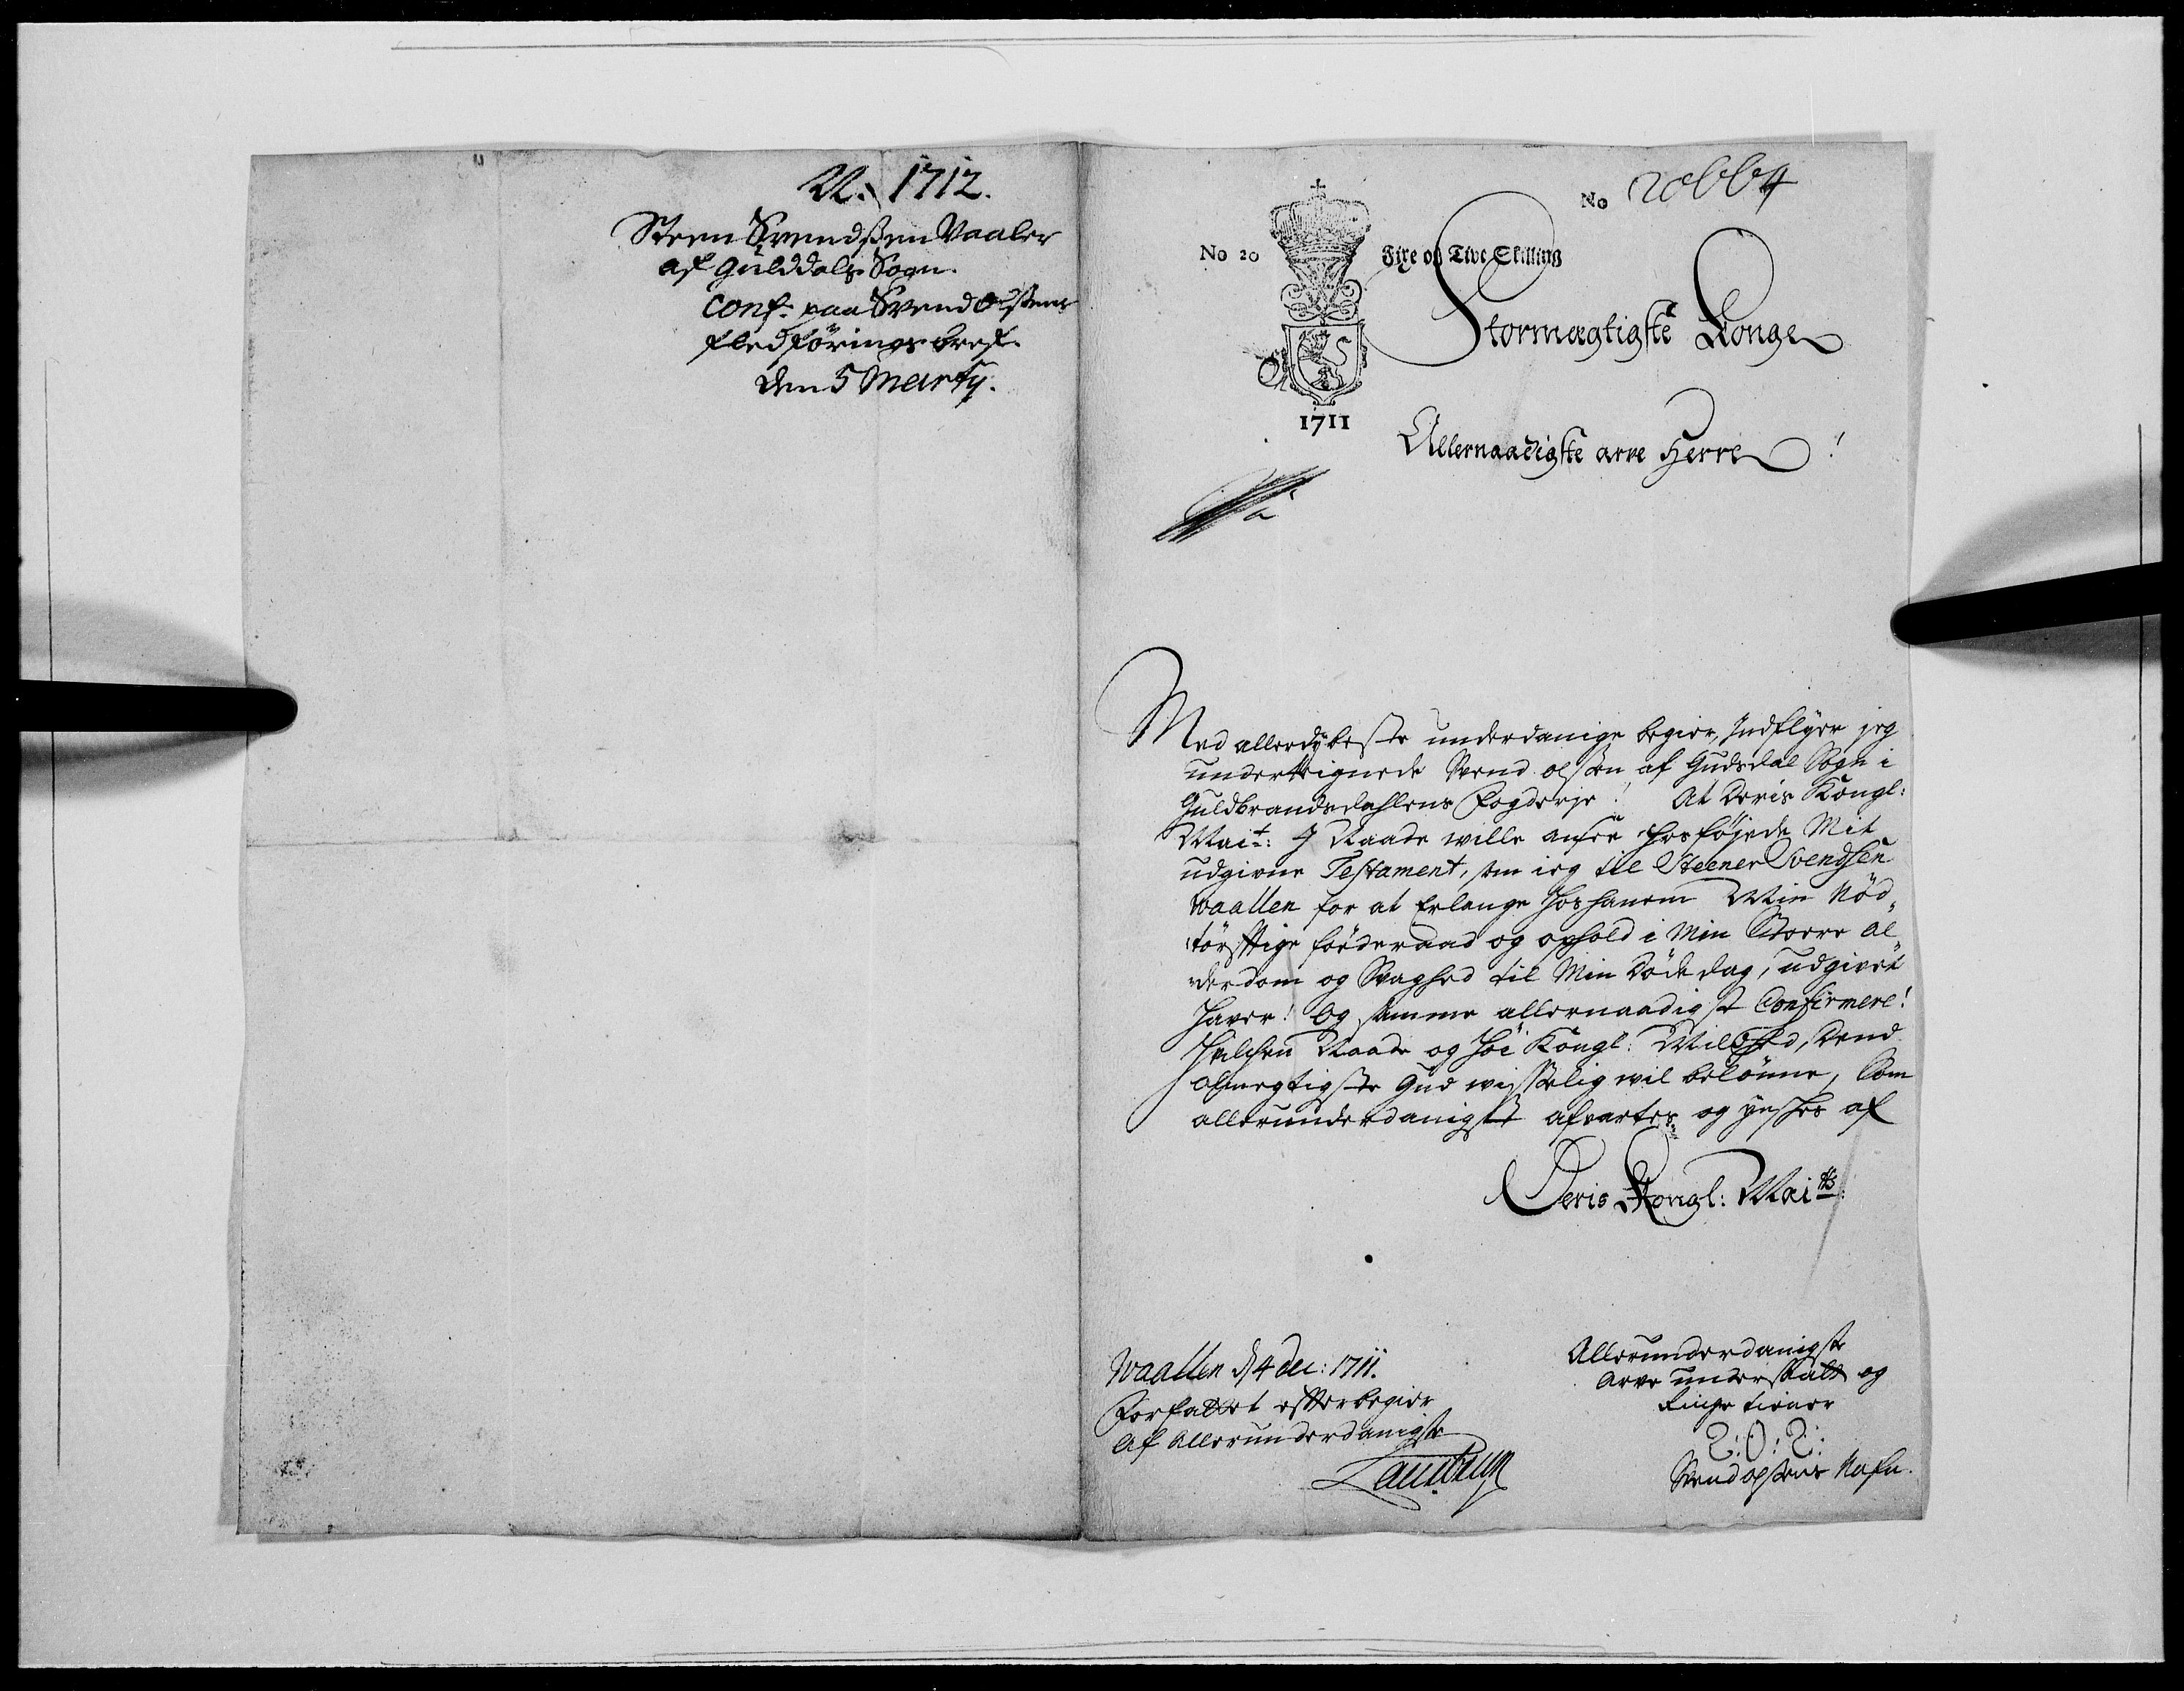 N. 1712.
Steen Svendßen Vaaler
af Gulddals Sogn.
Conf: paa Svend Olsens
fledførings bref.
den 5 Martij.
No 20664
No 20
Fire og Tive Skilling
1711
Stormægtigste Konge
Allernaadigste arve Herre!
Med allerdybeste underdanige begier, Indflyer jeg
underteignede Svend olsen af Gudsdal Sogn i
Guldbrandsdahlens Fogderje! At Deris Kongl:
Mait: I Naade wille ansee hosføyede Mit
udgivne Testament, som ieg til Steener Svendsen
Waallen for at Erlange hos hanem Min Nød„
„tørfftige føderaad og ophold i Min Store al
„derdom og Svaghed til Min Døde dag, udgivet
haver! Og samme allernaadigst Confirmere!
Hvilchen Naade og høi Kongl: Mildhed, Dend
Almegtigste Gud wisselig wil belønne, Som
allerunderdanigst afvartes og ynskes af
Deris Kongl: Maits:
Waallen d 4 dec: 1711.
Forfattet effter begier
af Allerunderdanigste
Allerunderdanigste
Arve undersaatt og
Ringe tiener
S: O: S:
Svend olsens Nafn.